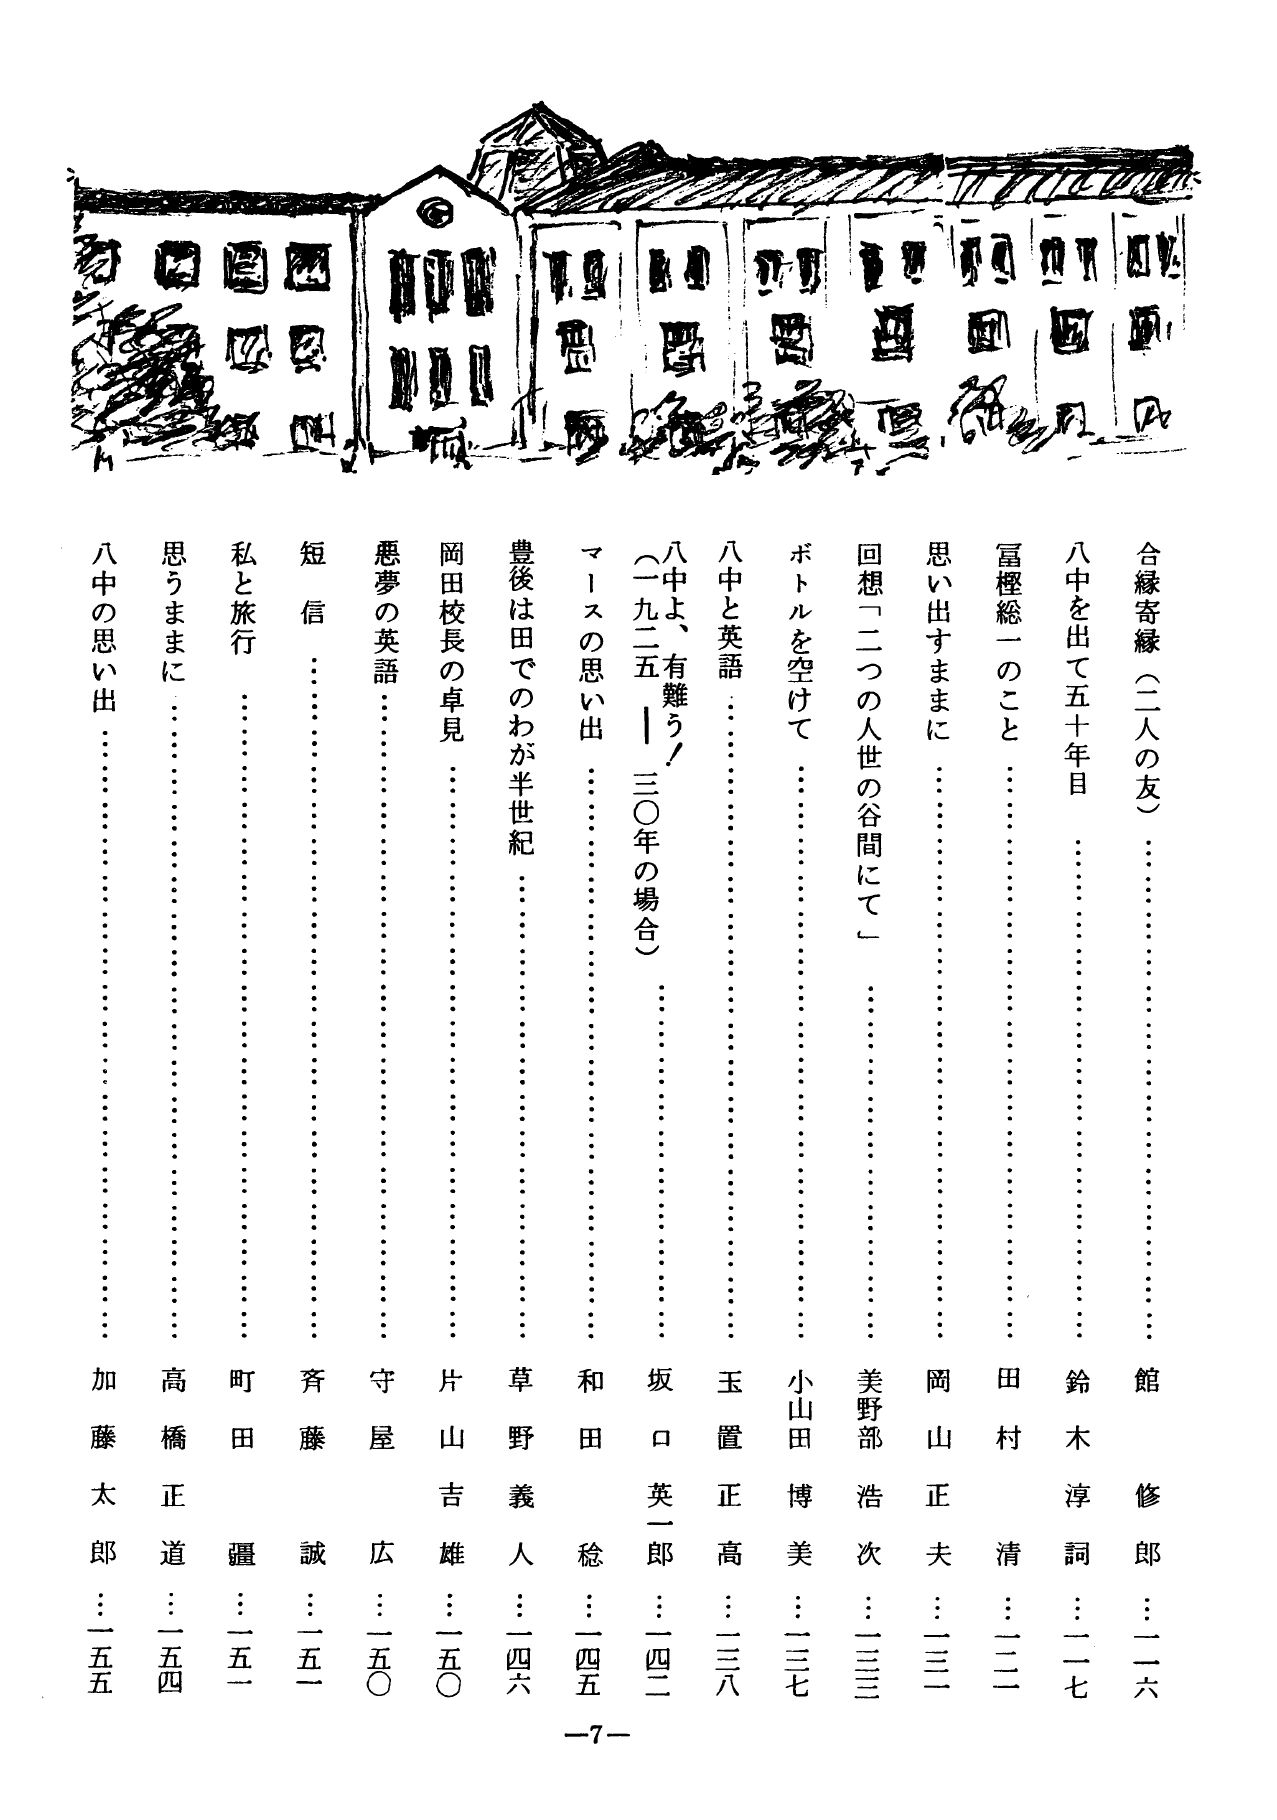 合縁寄縁(二人の友)……館 修郎…一一六
八中を出て五十年目……鈴木淳詞…一一七
冨樫総一のこと……田村 清…一二一
思い出すままに……岡山正夫…一三一
回想「二つの人世の谷間にて」……美野部浩次…一三三
ボトルを空けて……小山田博美…一三七
八中と英語……玉置正高…一三八
八中よ、有難う!
(一九二五 ― 三〇年の場合)……坂口英一郎…一四二
マースの思い出……和田 稔…一四五
豊後は田でのわが半世紀……草野義人…一四六
岡田校長の卓見……片山吉雄…一五〇
悪夢の英語……守屋 広…一五〇
短信……斉藤 誠…一五一
私と旅行……町田 疆…一五一
思うままに……高橋正道…一五四
八中の思い出……加藤太郎…一五五
—7—